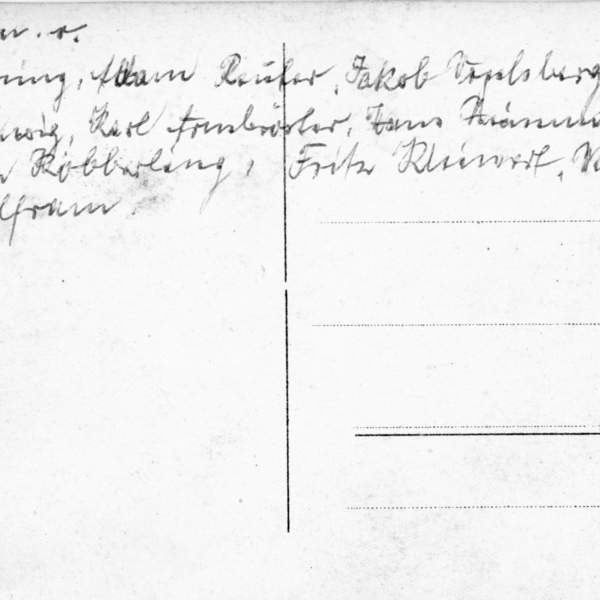 n. r.
ning, Adam Reuter, Jakob Vogelsberg
wig, Karl Armbröster, Hans
Köbberling, Fritz Kleinert,
lfram